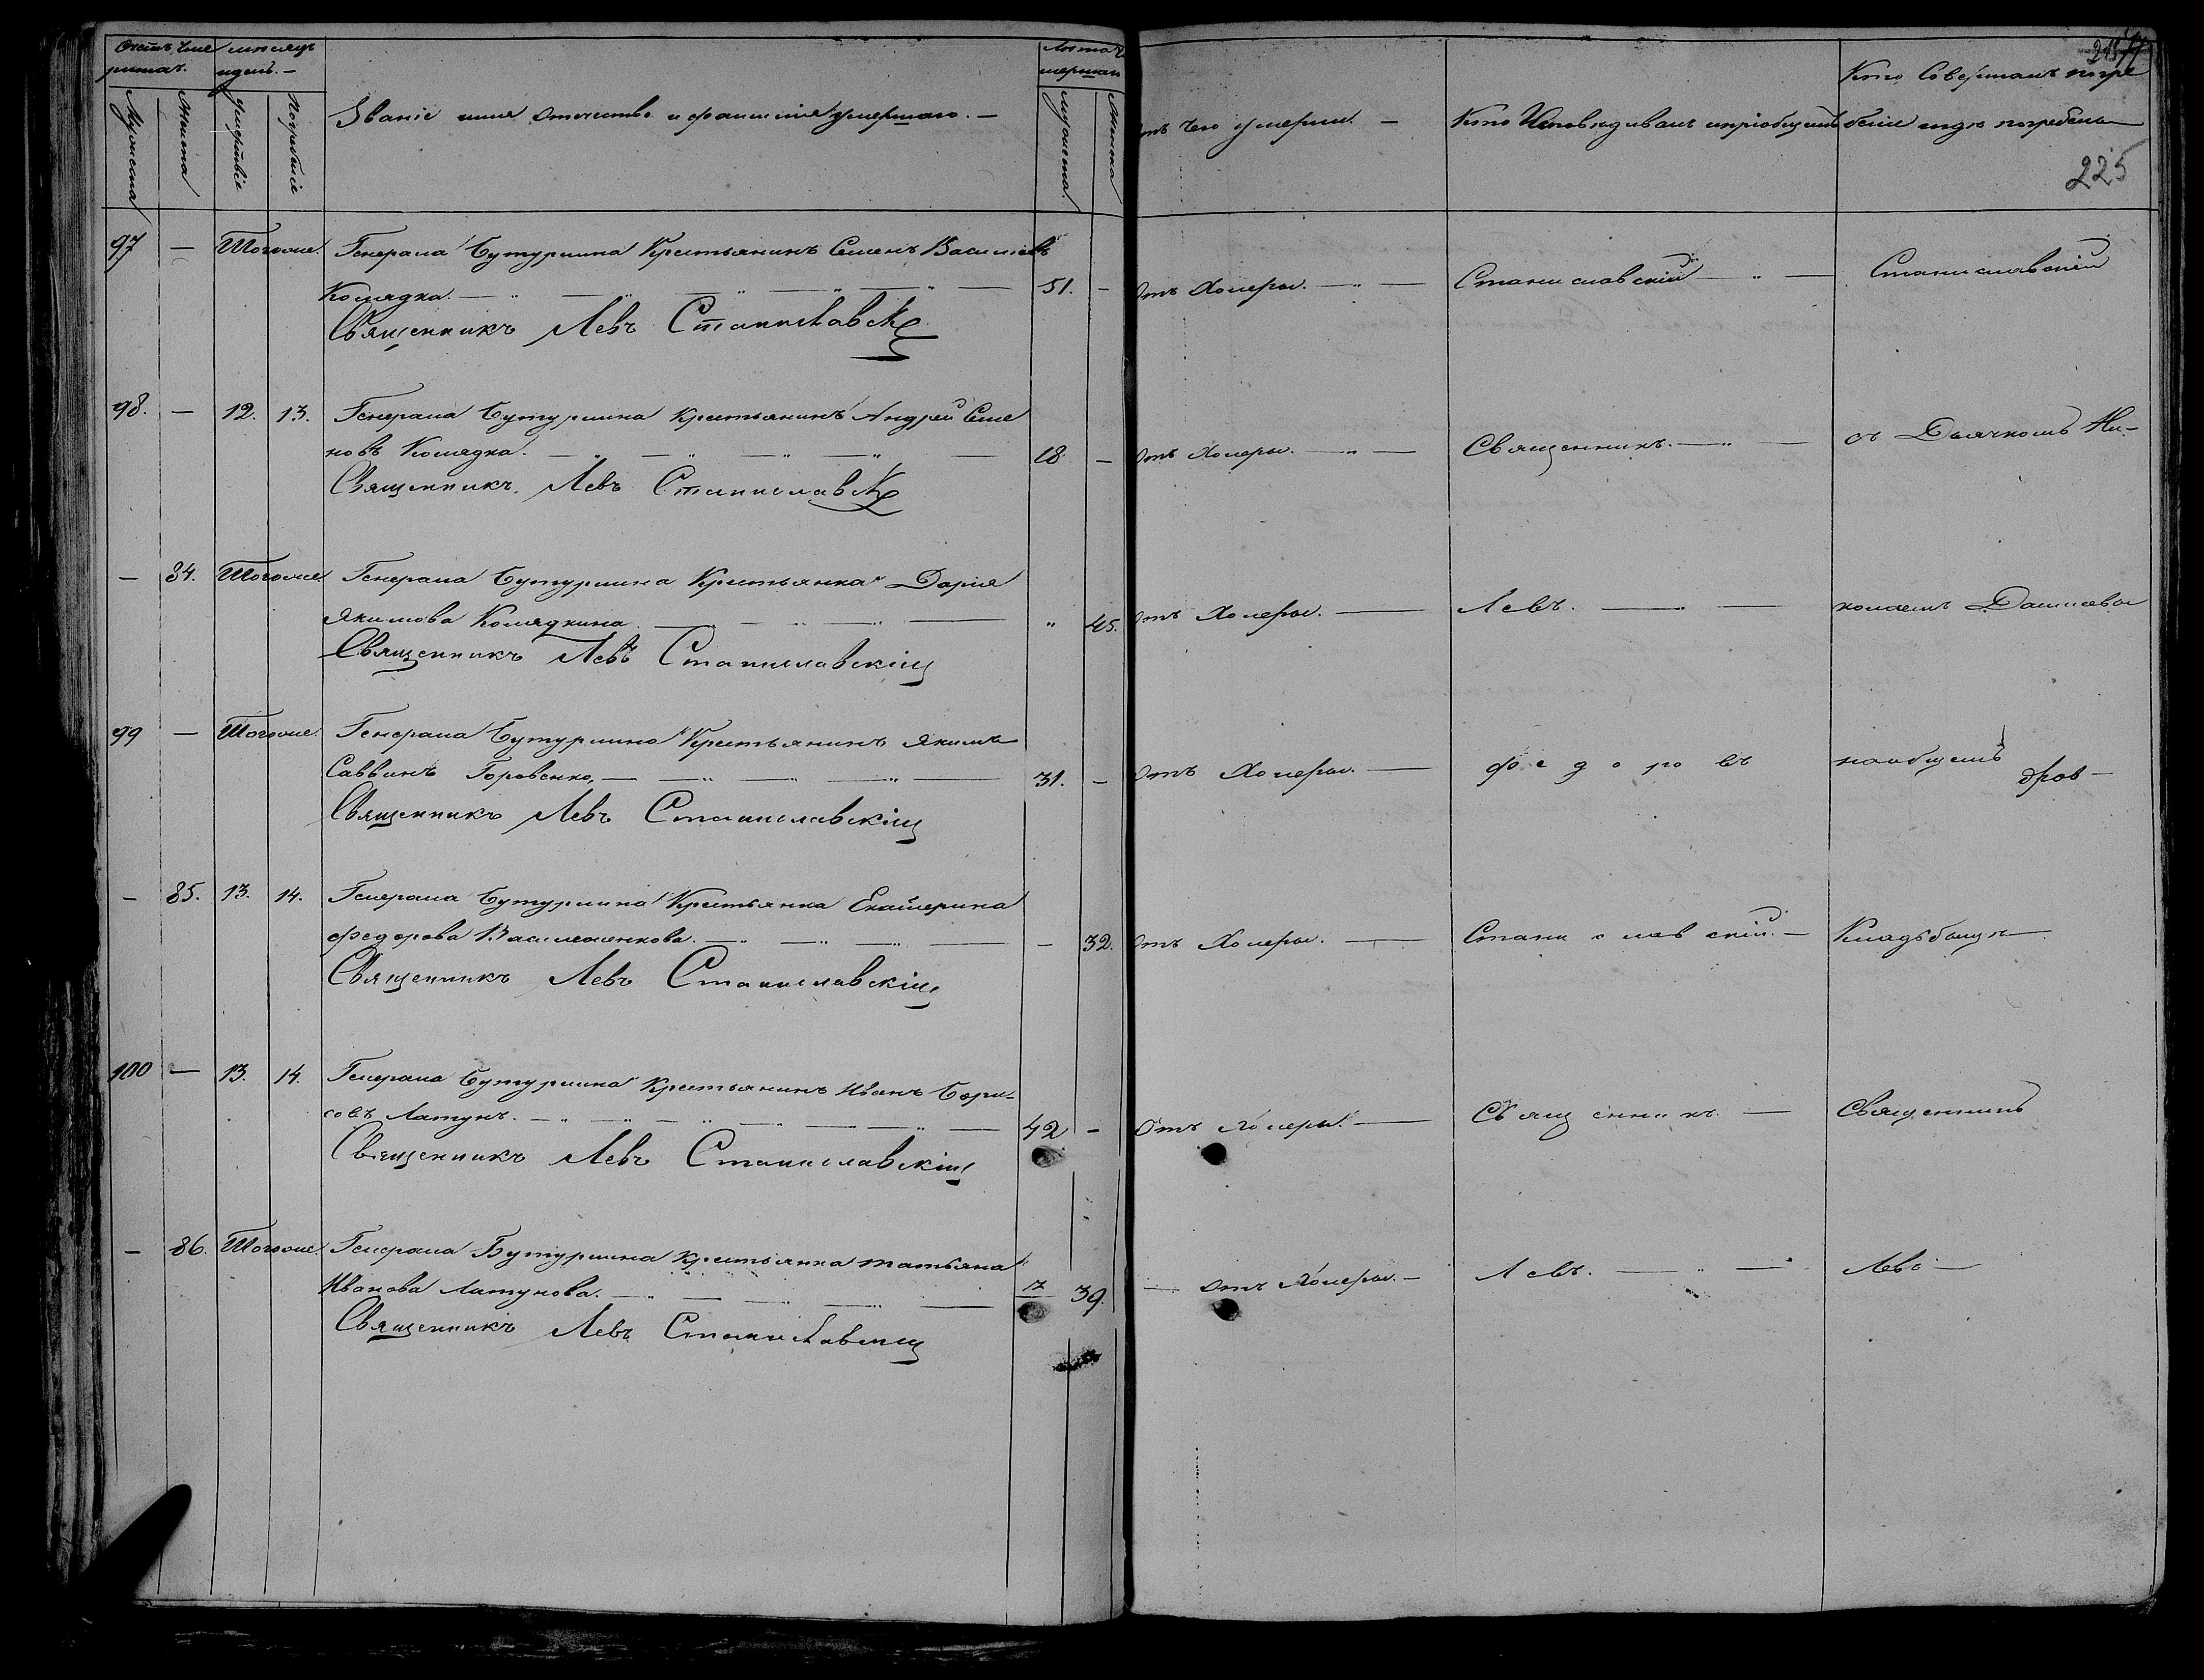 Счетъ уме мѣсяцъ
ршихъ. идень. —
Мужеска
Женска
Умертвіе
Погребеніе
Званіе имя отечество и фамилія умершаго. —
Лѣта у
мершаи
мужеска
женска
отъ чего умерли. —
Кто Исповѣдивалъ ипріобщалъ
Кто Совершалъ погре
беніе игдѣ погребены
225
97 — Тогоже. Генерала Бутурлина Крестьянинъ Семенъ Васильевъ
Колядка. — 51. — Отъ Холеры. — Станиславскій — Станиславскій
Священникъ Левъ Станиславск
98. — 12. 13. Генерала Бутурлина Крестьянинъ Андрей Семе
новъ Колядка. — 18 — Отъ Холеры. — Священникъ. — съ Дьячкомъ Ни-
Священникъ Левъ Станиславск
— 84. Тогоже Генерала Бутурлина Крестьянка Дарія
Якимова Колядкина. — " 45. Отъ Холеры. — Левъ. — колаемъ Данилевы
Священникъ Левъ Станиславскій
99 — Тогоже. Генерала Бутурлина Крестьянинъ Якимъ
Саввинъ Горовенко, — 31. — Отъ Холеры. — Федоровъ наобщемъ
Священникъ Левъ Станиславскій
— 85. 13. 14. Генерала Бутурлина Крестьянка Екатерина
Федорова Василеженкова. — — 32. Отъ Холеры. — Станиславскій. — Кладьбищѣ
Священникъ Левъ Станиславскій
100 — 13. 14. Генерала Бутурлина Крестьянинъ Иванъ Бори-
совъ Латунъ. — 42 — Отъ Холеры. — Священникъ. — Священникъ
Священникъ Левъ Станиславскій
— 86. Тогоже Генерала Бутурлина Крестьянка татьяна
Иванова Латунова. — 39. — отъ Холеры. — Левъ. — Левъ —
Священникъ Левъ Станиславскій